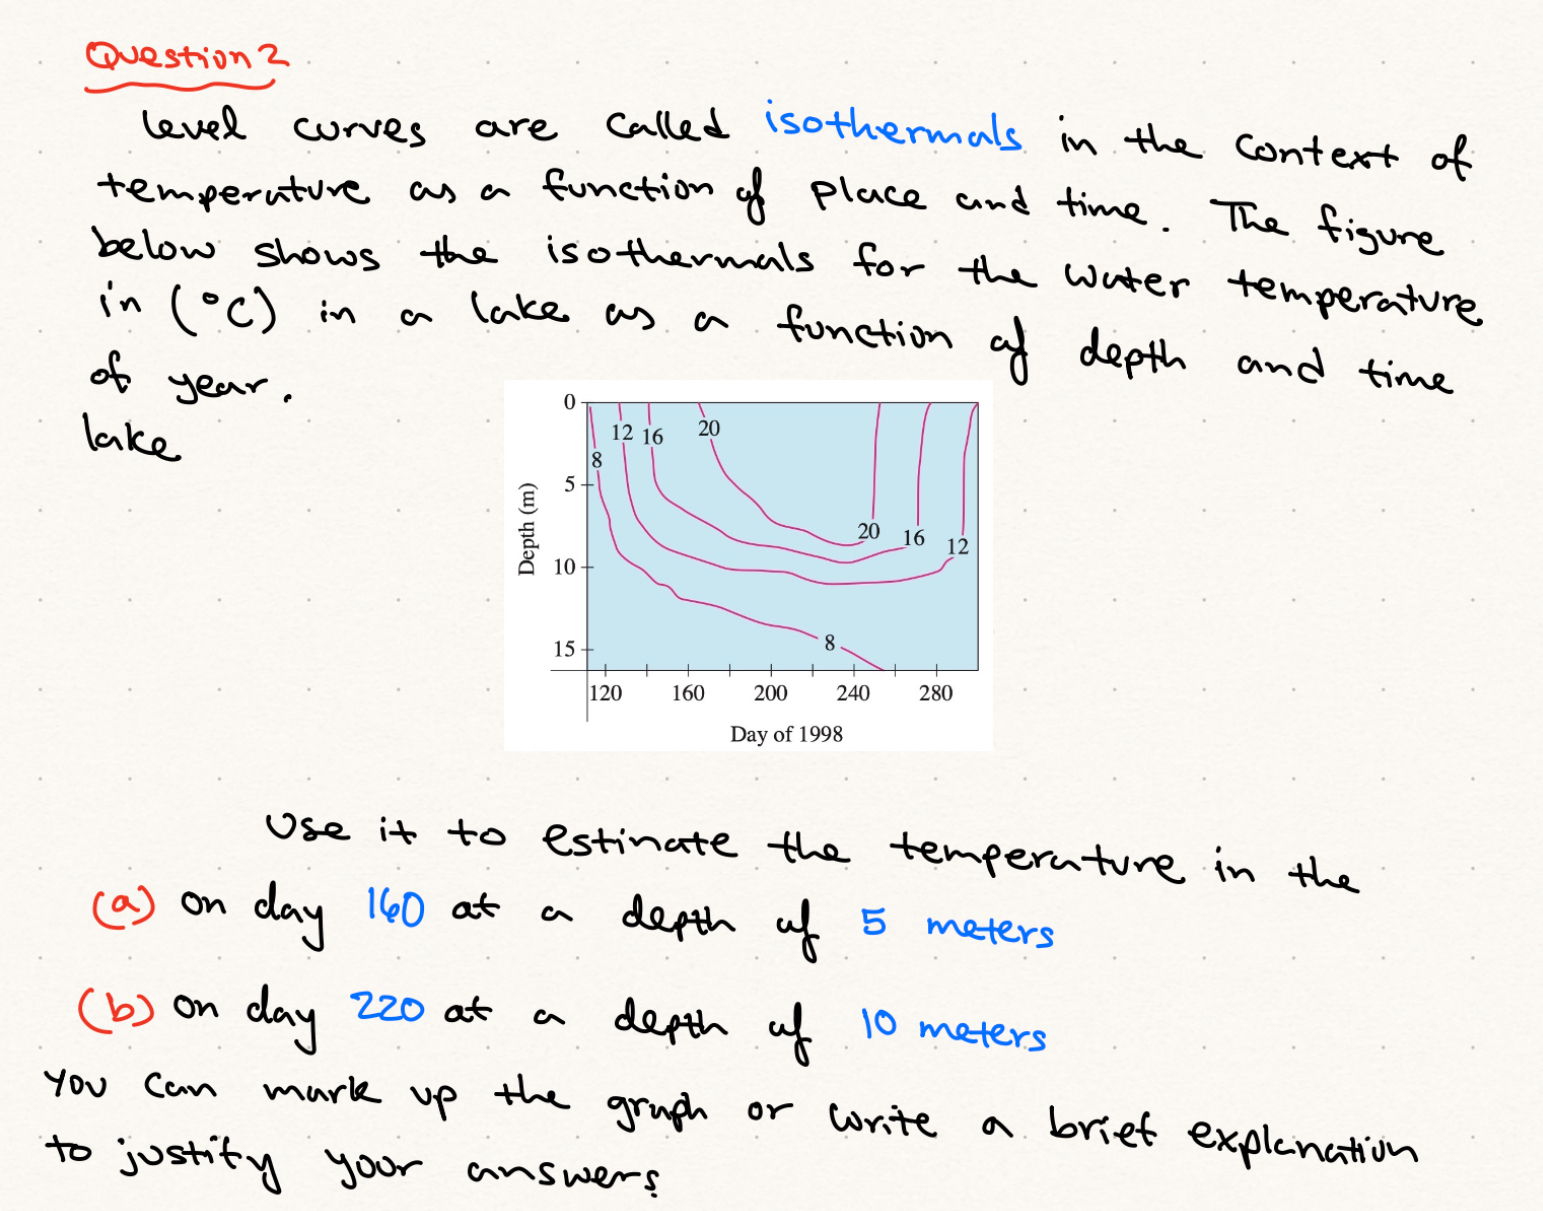 Question 2
Level curves are called isothermals in the context of
temperature as a function of place and time. The figure
below shows the isothermals for the water temperature
in (°C) in a lake as a function of depth and time
of year.
lake
0
5
10
15
Depth (m)
8
12
16
20
20
16
12
8
120 160 200 240 280
Day of 1998
Use it to estimate the temperature in the
(a) on day 160 at a depth of 5 meters
(b) on day 220 at a depth of 10 meters
You can mark up the graph or write a brief explanation
to justify your answers.